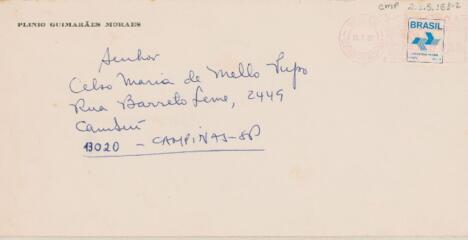 CMP 2.2.5.168-2
PLINIO GUIMARÃES MORAES
BRASIL
Senhor
Celso Maria de Mello Pupo
Rua Barreto Leme, 2449
Cambuí
13020 - CAMPINAS-SP